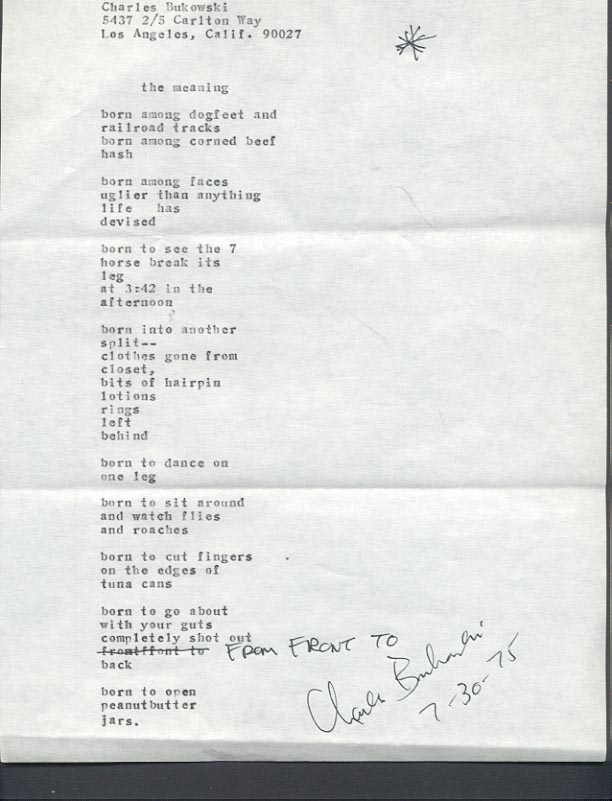 Charles Bukowski
5437 2/5 Carlton Way
Los Angeles, Calif. 90027
the meaning
born among dogfeet and
railroad tracks
born among corned beef
hash
born among faces
uglier than anything
life has
devised
born to see the 7
horse break its
leg
at 3:42 in the
afternoon
born into another
split--
clothes gone from
closet,
bits of hairpin
lotions
rings
left
behind
born to dance on
one leg
born to sit around
and watch flies
and roaches
born to cut fingers
on the edges of
tuna cans
born to go about
with your guts
completely shot out
frontffont to FROM FRONT TO
back
born to open
peanutbutter
jars.
Charles Bukowski
7-30-75